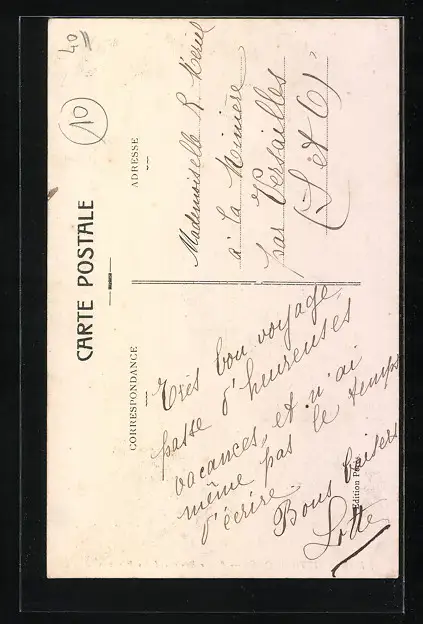 CARTE POSTALE
CORRESPONDANCE
ADRESSE
Très bon voyage
passe d'heureuses
vacances, et n'ai
même pas le temps
d'écrire.
Bons baisers
Lotte
Mademoiselle R.
à la Minière
par Versailles
(S et O)
Edition
10
40